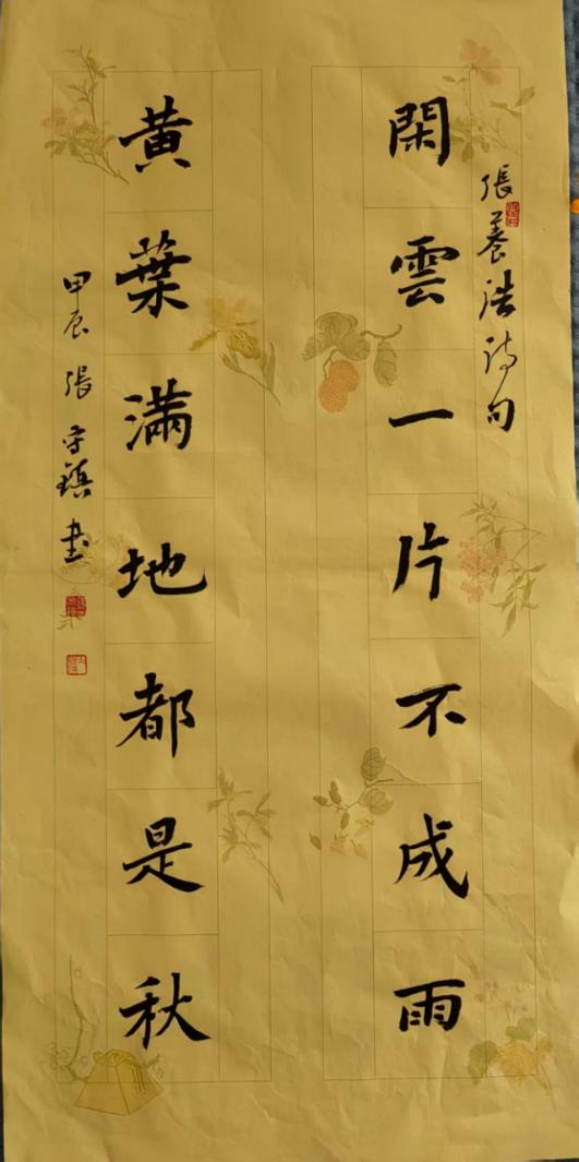 張養浩诗句
閑雲一片不成雨
黃葉滿地都是秋
甲辰張守鎮書